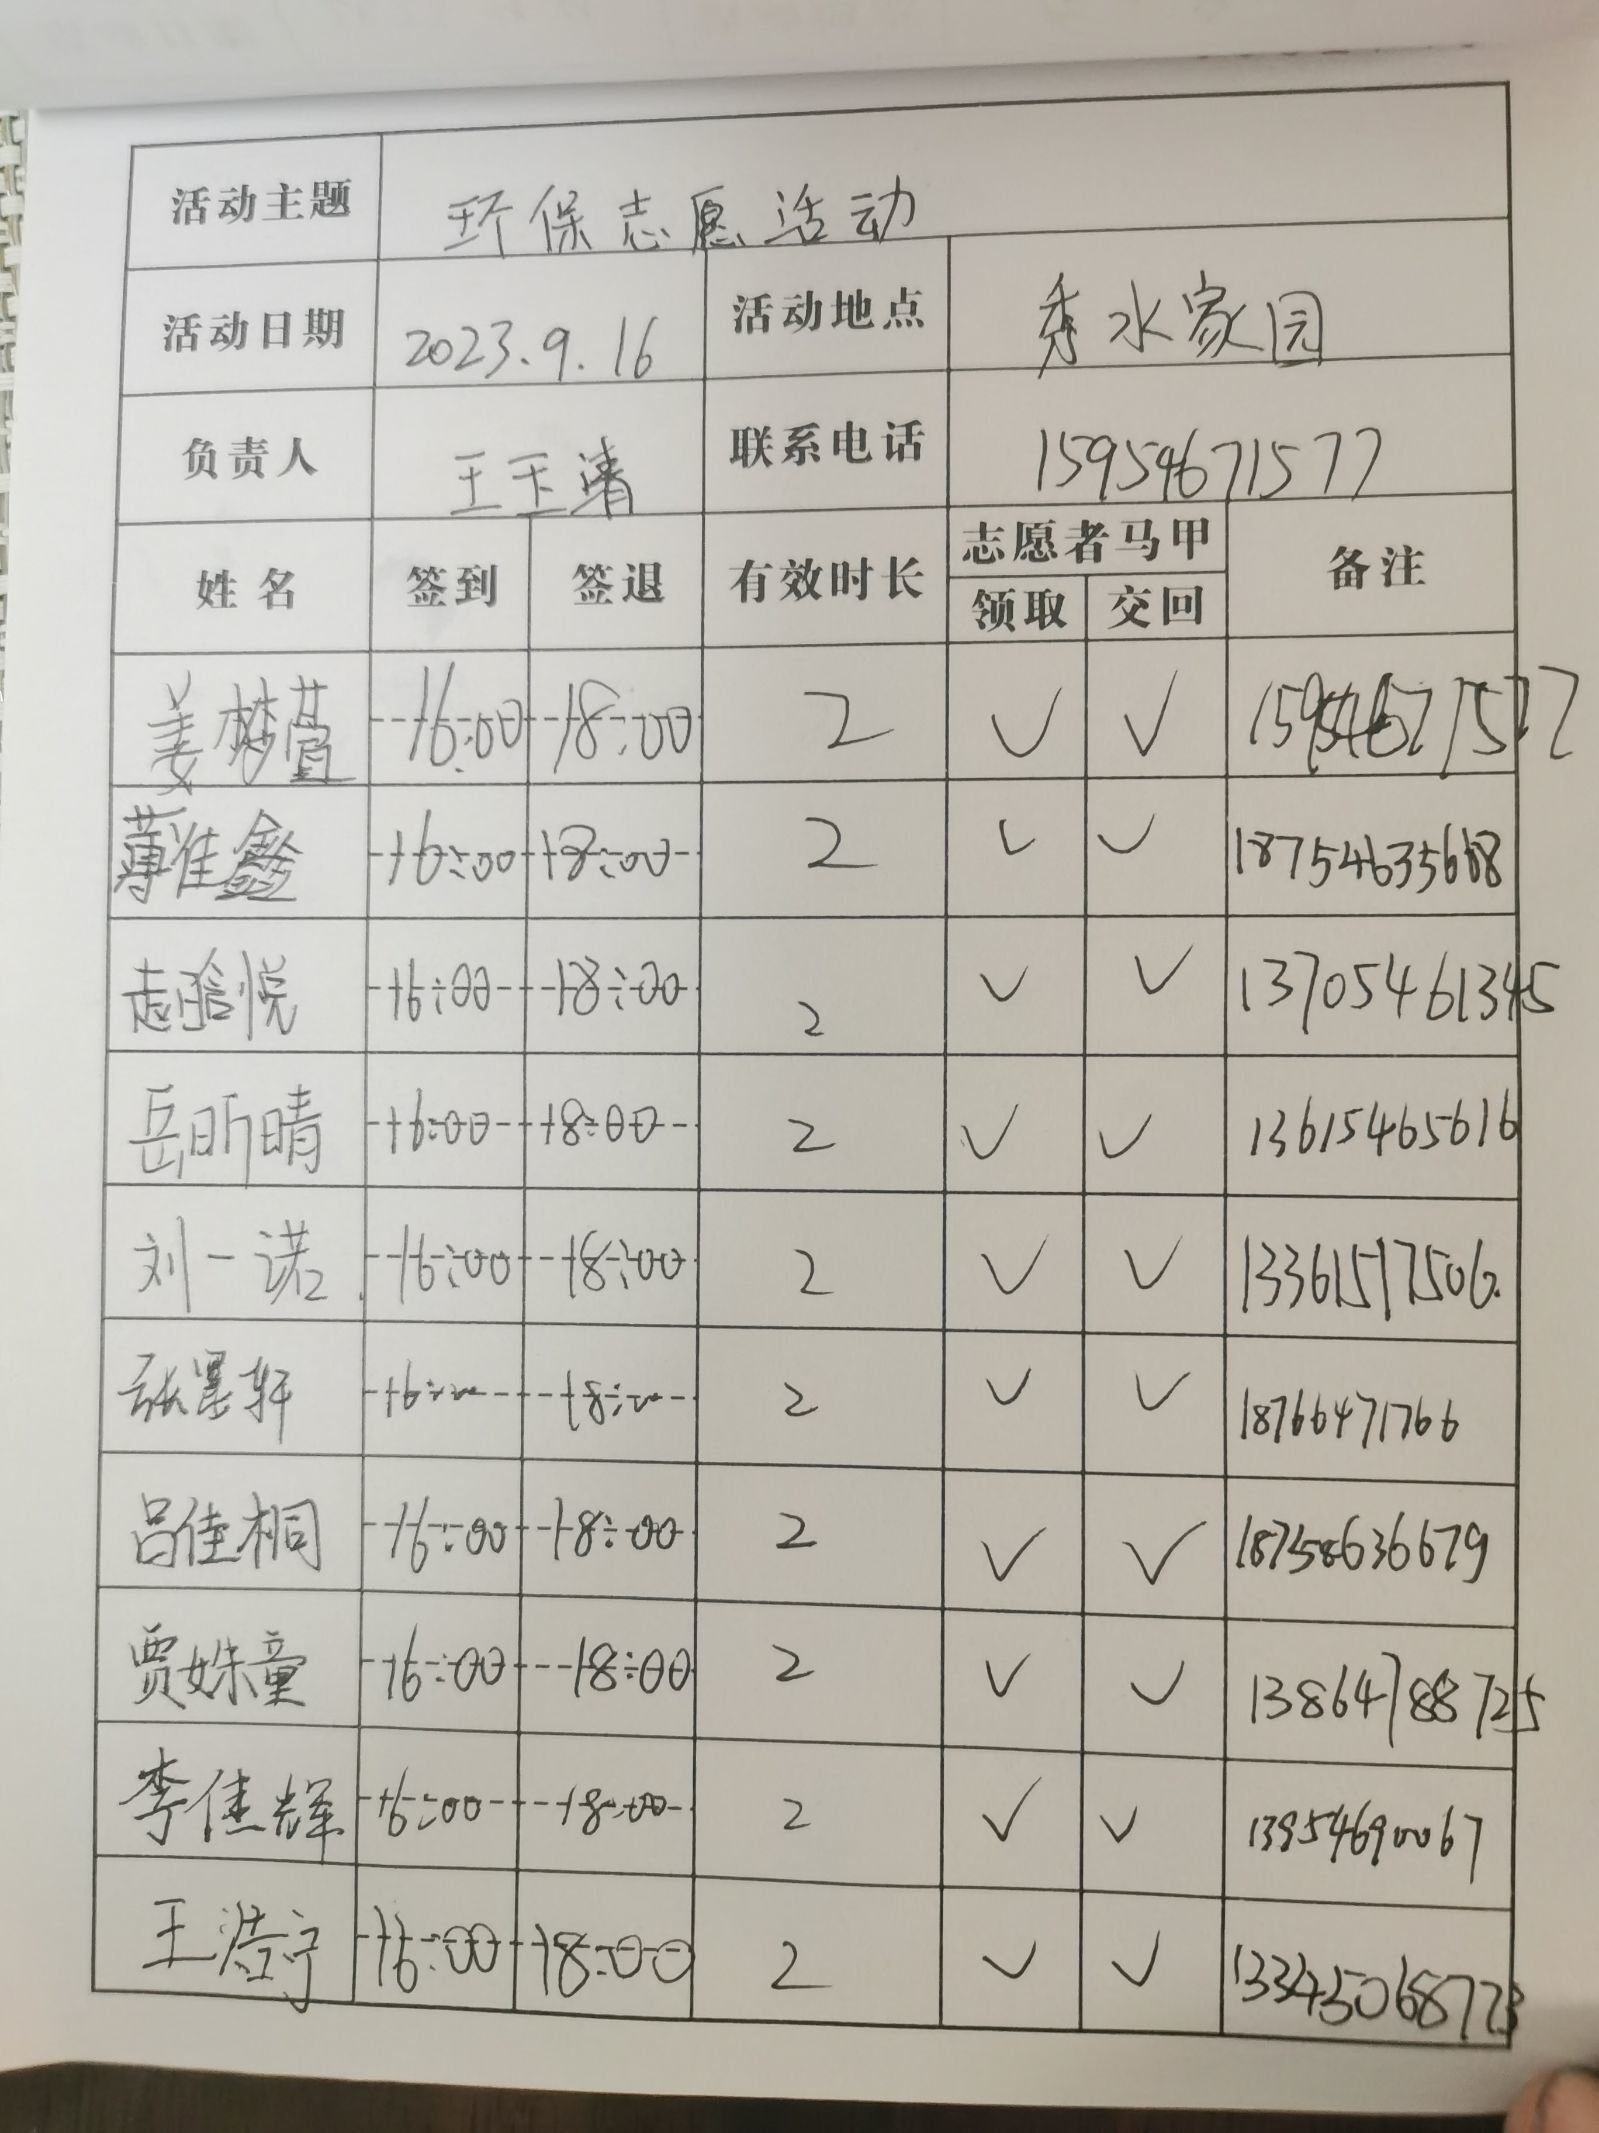 活动主题 环保志愿活动
活动日期 2023.9.16 活动地点 秀水家园
负责人 王玉清 联系电话 15954671577
姓名 签到 签退 有效时长 志愿者马甲 备注
领取 交回
姜梦萱 16:00 18:00 2 ✓ ✓ 15954671577
薄佳鑫 16:00 18:00 2 ✓ ✓
赵晗悦 16:00 18:00 2 ✓ ✓ 13705461345
岳昕晴 16:00 18:00 2 ✓ ✓ 13615465616
刘一诺 16:00 18:00 2 ✓ ✓ 13361517506
张墨轩 16:00 18:00 2 ✓ ✓ 18766471766
吕佳桐 16:00 18:00 2 ✓ ✓
贾姝童 16:00 18:00 2 ✓ ✓ 13864788725
李佳辉 16:00 18:00 2 ✓ ✓ 13954690067
王浩宁 16:00 18:00 2 ✓ ✓